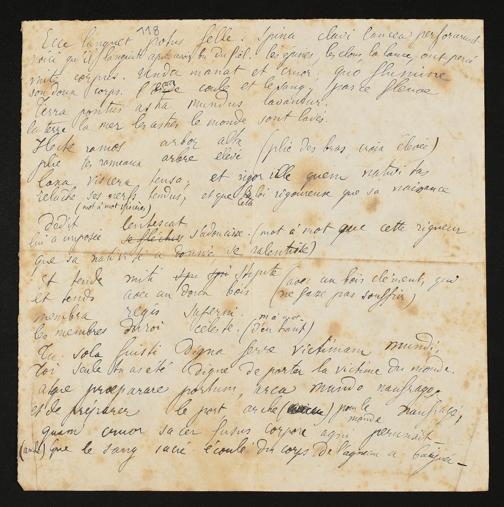 118
Ecce languet potus felle. Spina clavi lancea perforarunt
voici qu'il languit abreuvé du fiel. les épines, les clous, la lance, ont percé
mite corpus. Unda manat et cruor; quo flumine
son doux corps. l'eau coule et le sang, par ce fleuve
Terra pontus astra mundus lavantur.
la terre la mer les astres le monde sont lavés.
Flecte ramos arbor alta (plie des bras croix élevée)
plie tes rameaux arbre élevé
laxa viscera tensa, et rigor ille quem nativitas
relâche ses nerfs tendus, et que cette loi rigoureuse que sa naissance
(mot à mot viscères)
Dedit lentescat
lui a imposée s'adoucisse. (mot à mot que cette rigueur
que sa nativité a donné se ralentisse)
Et tende miti stipite (avec un bois clément, qui
et tends avec un doux bois ne fasse pas souffrir)
membra regis superni. m à m.
les membres du roi céleste. (d'en haut)
Tu sola fuisti Digna ferre victimam mundi,
Toi seule tu as été digne de porter la victime du monde.
atque præparare portum, arca mundo naufrago,
et de préparer le port arche pour le monde naufragé,
quam cruor sacer fusus corpore agni perunxit
(arche) que le sang sacré écoulé du corps de l'agneau a baignée –